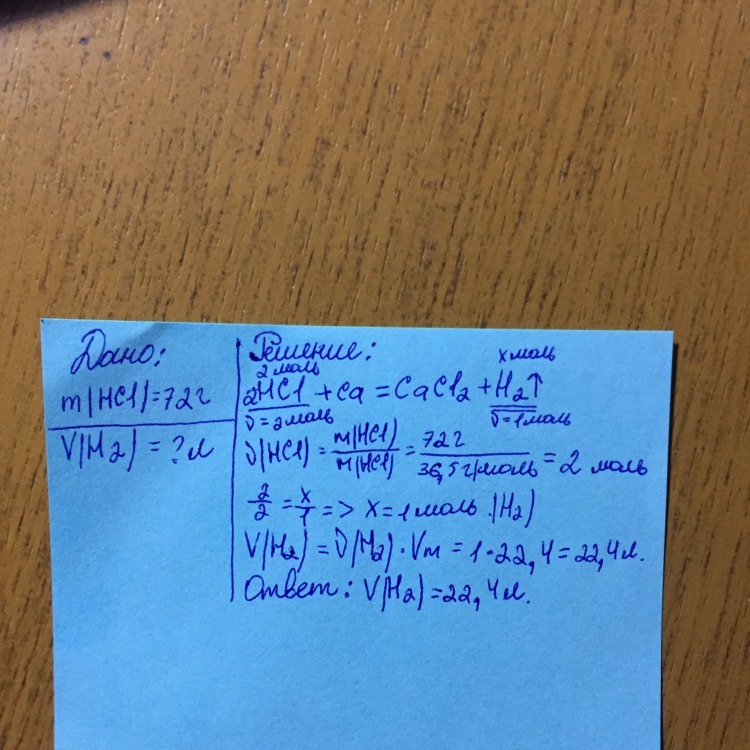 Дано:
m(HCl)=72г
V(H2) = ? л
Решение:
2 моль
x моль
2HCl + Ca = CaCl2 + H2↑
ν = 2 моль
ν = 1 моль
ν(HCl) = m(HCl)/M(HCl) = 72 г/36,5 г/моль = 2 моль
2/2 = x/1 => x = 1 моль (H2)
V(H2) = ν(H2) · Vm = 1 · 22,4 = 22,4 л.
Ответ: V(H2) = 22,4 л.